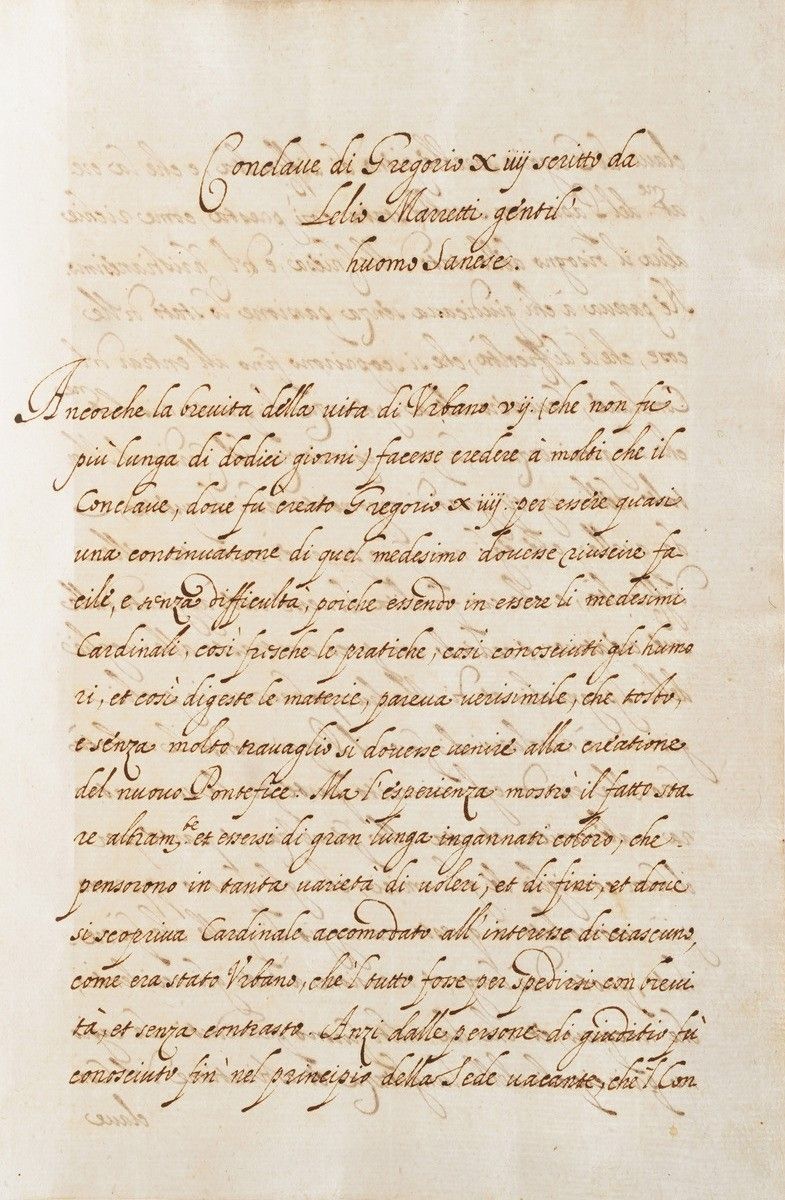 Conclaue di Gregorio X iiij scritto da
Lelio Marretti gentil'
huomo Sanese.
Ancorche la breuità della uita di Vrbano vij. (che non fù
più lunga di dodici giorni) facesse credere à molti che il
Conclaue, doue fu creato Gregorio x iiij. per essere quasi
una continuatione di quel medesimo douesse riuscire fa
cile, e senza difficultà, poiche essendo in essere li medesimi
Cardinali, così fresche le pratiche, così conosciuti gli humo
ri, et così digeste le materie, pareua uerisimile, che tosto,
e senza molto trauaglio si douesse uenire alla creatione
del nuouo Pontefice. Ma l'esperienza mostrò il fatto sta
re altram.te et essersi di gran lunga ingannati coloro, che
pensorono in tanta uarietà di uoleri, et di fini, et doue
si scopriua Cardinale accomodato all'interesse di ciascuno,
come era stato Vrbano, che'l tutto fosse per spedirsi con breui
tà, et senza contrasto. Anzi dalle persone di giuditio fù
conosciuto fin' nel principio della Sede uacante, che'l Con
claue